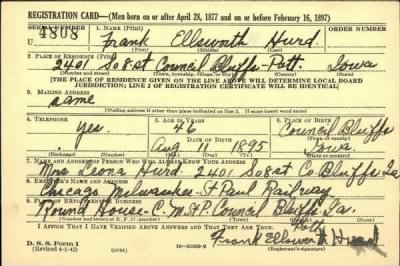 REGISTRATION CARD—(Men born on or after April 28, 1877 and on or before February 16, 1897)
SERIAL NUMBER 1. NAME (Print) ORDER NUMBER
4808 Frank Ellsworth Hurd
(First) (Middle) (Last)
2. PLACE OF RESIDENCE (Print)
2401 So 8 st Council Bluffs - Pott. Iowa
(Number and street) (Town, township, village, or city) (County) (State)
[THE PLACE OF RESIDENCE GIVEN ON THE LINE ABOVE WILL DETERMINE LOCAL BOARD
JURISDICTION; LINE 2 OF REGISTRATION CERTIFICATE WILL BE IDENTICAL]
3. MAILING ADDRESS
same
[Mailing address if other than place indicated on line 2. If same insert word same]
4. TELEPHONE 5. AGE IN YEARS 6. PLACE OF BIRTH
yes. 46 Council Bluffs
DATE OF BIRTH (Town or county)
Aug 11 1895 Iowa.
(Exchange) (Number) (Mo.) (Day) (Yr.) (State or country)
7. NAME AND ADDRESS OF PERSON WHO WILL ALWAYS KNOW YOUR ADDRESS
Mrs Leona Hurd. 2401 So 8 st Co. Bluffs Ia
8. EMPLOYER'S NAME AND ADDRESS
Chicago Milwaukee - St Paul Railway
9. PLACE OF EMPLOYMENT OR BUSINESS
Round House - C. M. St P. Council Bluffs Ia.
(Number and street or R. F. D. number) (Town) (County) (State)
Pott
I AFFIRM THAT I HAVE VERIFIED ABOVE ANSWERS AND THAT THEY ARE TRUE.
Frank Ellsworth Hurd
D. S. S. Form 1
(Revised 4-1-42) (over) (Registrant's signature)